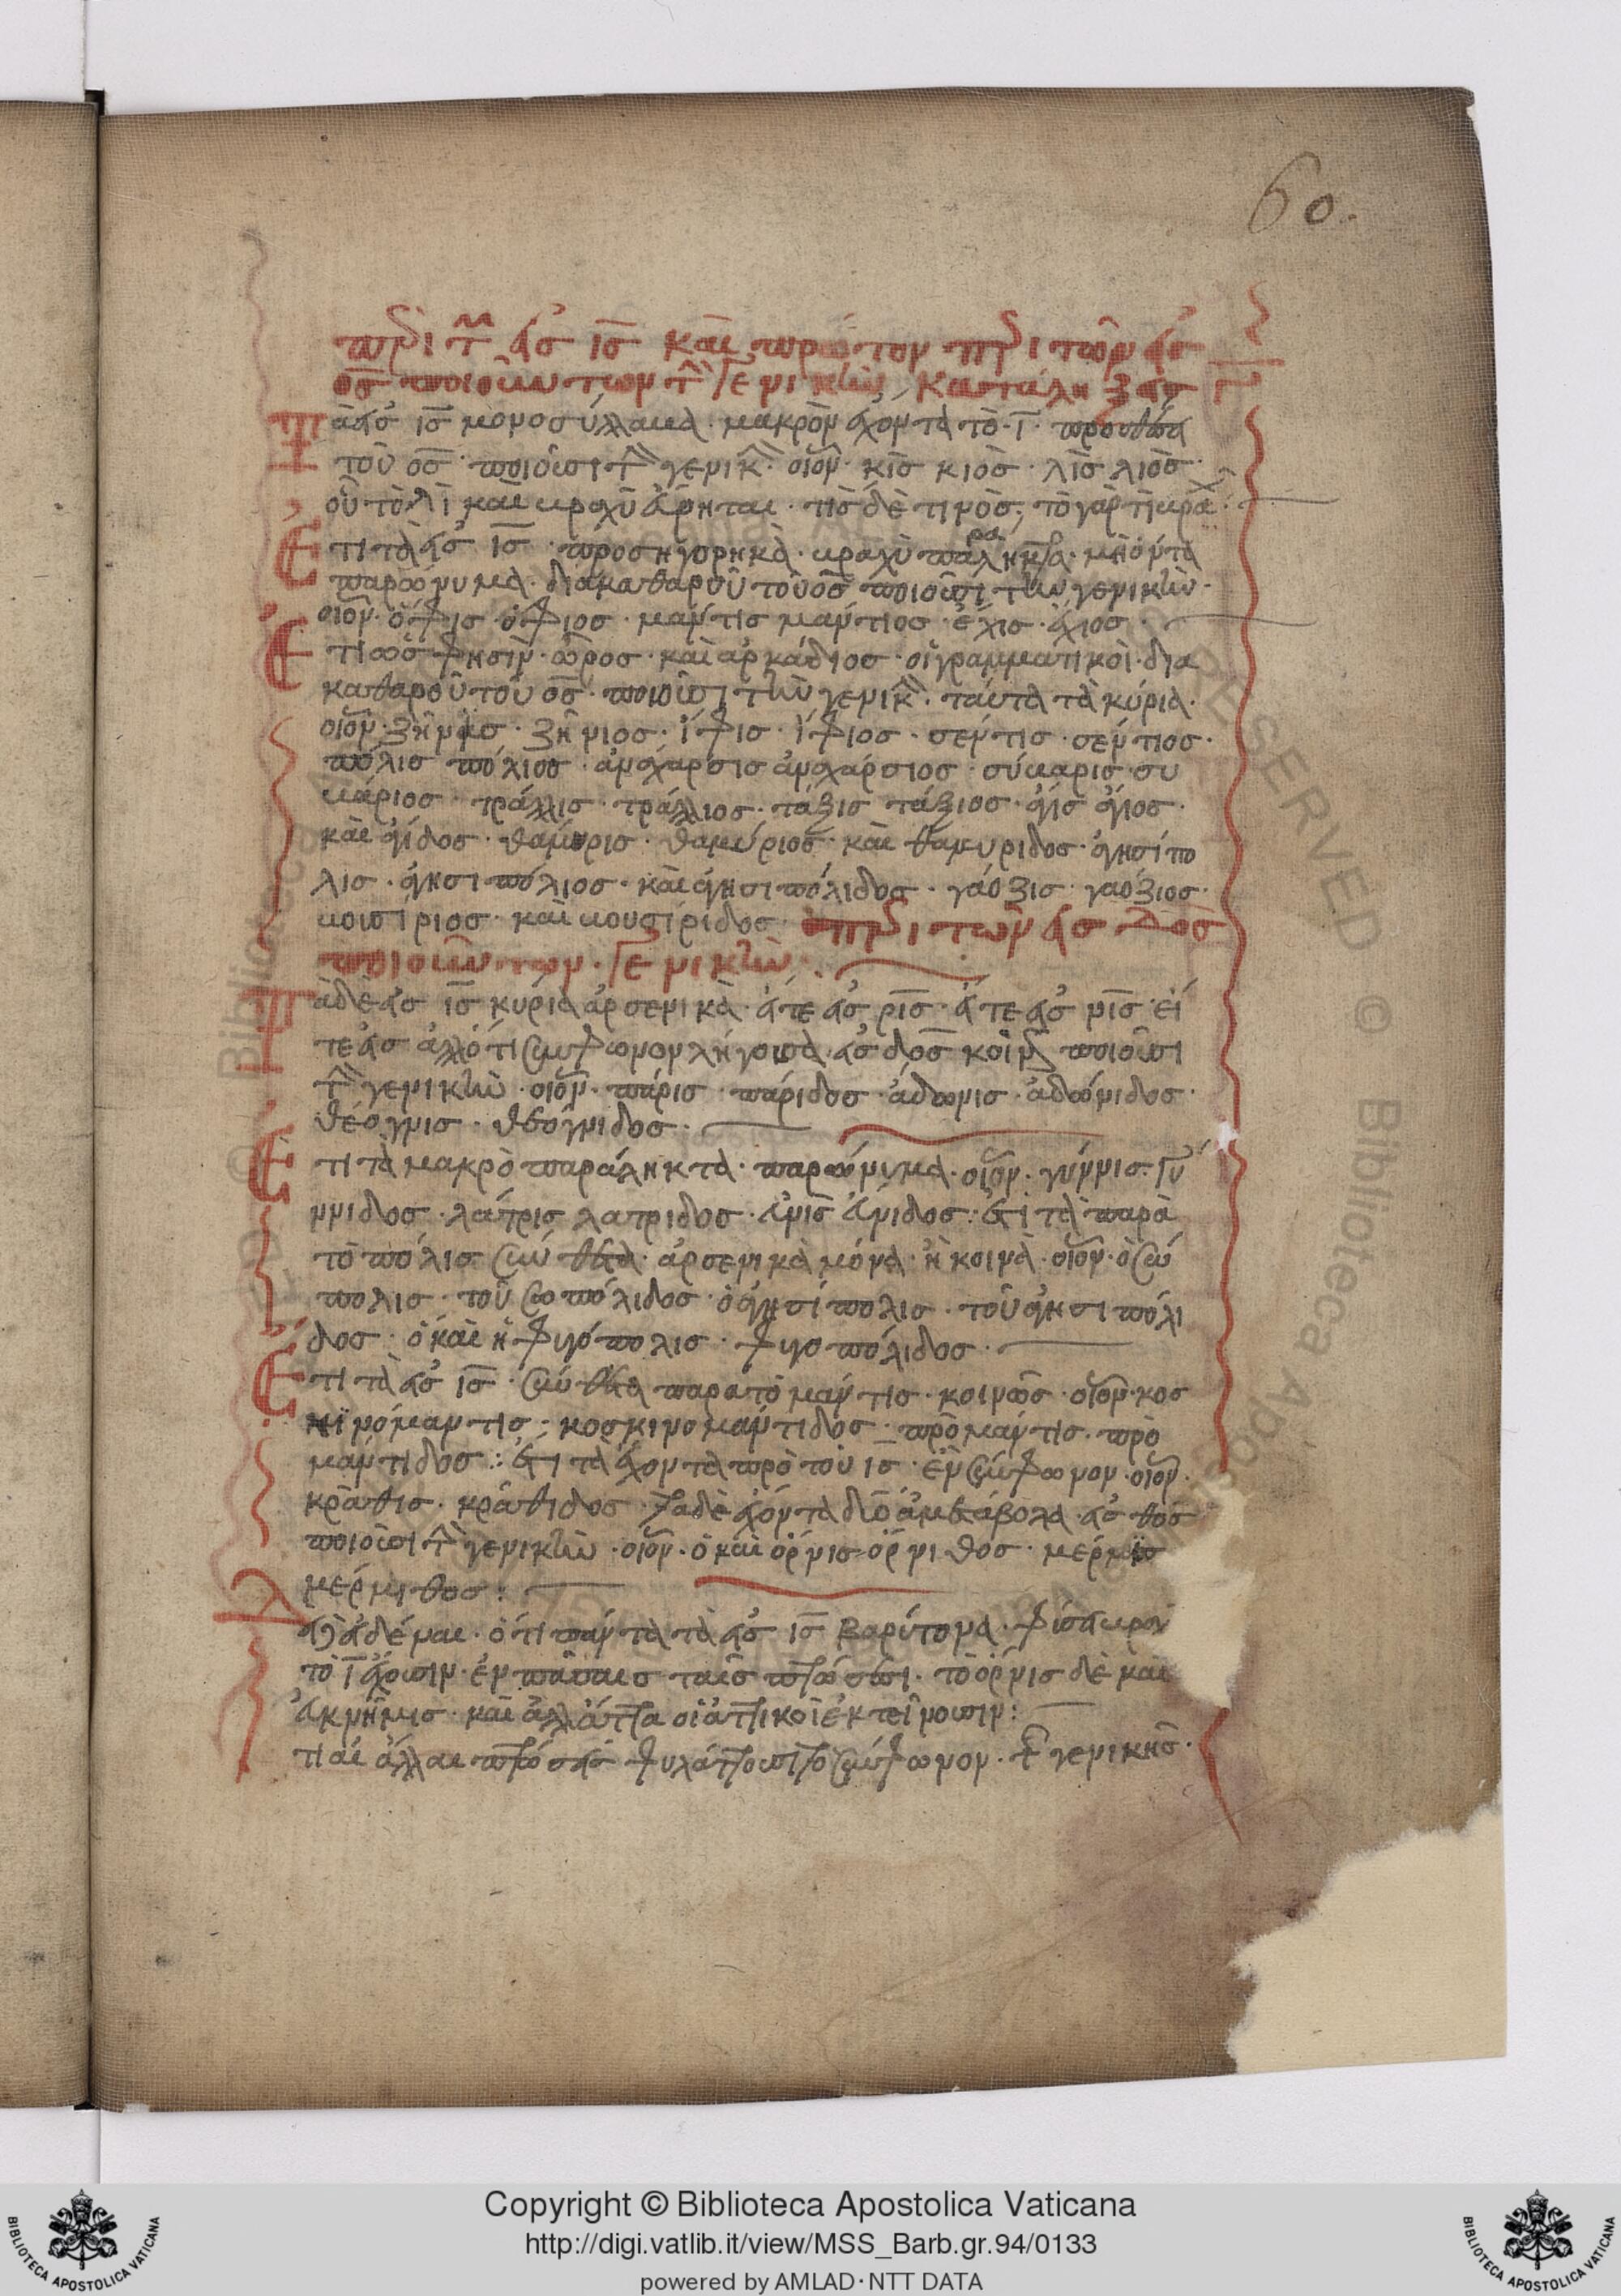 60.
περὶ τῶν εἰς ις καὶ πρῶτον περὶ τῶν εἰς
ος ποιούντων τὴν γενικὴν καταλήξεως
τὰ εἰς ις μονοσύλλαβα μακρὸν ἔχοντα τὸ ι πρὸ
τοῦ ος ποιοῦσι τὴν γενικὴν· οἷον· κὶς κιὸς· λὶς λιὸς·
οὗ τὸ λὶ καὶ βραχὺ εἴρηται· τὶς δὲ τινὸς, τὸ γὰρ τὶ βρα
Ἔτι τὰ εἰς ις προσηγορηκὰ· βραχυπαράληκτα· μὴ ὄντα
παρώνυμα· διακαθαροῦ τοῦ ος ποιοῦσι τὴν γενικὴν·
οἷον· ὄφις ὄφιος· μάντις μάντιος· ἔχις ἔχιος·
Ἔτι ὥς φησὶν· ὦρος· καὶ ἀρκάδιος· οἱ γραμματικοὶ· δια
καθαροῦ τοῦ ος· ποιοῦσι τὴν γενικὴν· ταῦτα τὰ κύρια·
οἷον· ζῆνις· ζήνιος· ἶφις· ἴφιος· σέντις· σέντιος·
πόλις πόλιος· ἀναχάρσις ἀναχάρσιος· σύβαρις· συ
βάριος· τράλλις· τράλλιος· τάξις τάξιος·
καὶ · θάμυρις· θαμύριος· καὶ θαμύριδος· ἀγησίπο
λις· ἀγησιπόλιος· καὶ ἀγησιπόλιδος· γάοξις· γαόξιος·
βουσίριος· καὶ βουσίριδος· περὶ τῶν εἰς δος
ποιούντων· γενικὴν·
Τὰ δὲ εἰς ις κύρια ἀρσενικὰ· εἴτε εἰς ρις· εἴτε εἰς νις· εἴ
τε εἰς ἄλλό τι σύμφωνον λήγουσα· εἰς δος ποιοῦσι
τὴν γενικὴν· οἷον· πάρις πάριδος· ἄδωνις· ἀδώνιδος·
θέογνις· θεόγνιδος·
Ἔτι τὰ μακρὸπαράληκτα· παρώνυμα· οἷον· γύννις· γύ
ννιδος· λάτρις λατριδος· ἔτι τὰ παρὰ
τὸ πόλις σύνθετα· ἀρσενικὰ μόνα· ἢ κοινὰ· οἷον· ὁ σώ
πολις· τοῦ σωπόλιδος· ὁ ἀγησίπολις· τοῦ ἀγησιπόλι
δος· ὁ καὶ ἡ φυγόπολις· φυγοπόλιδος·
Ἔτι τὰ εἰς ις· σύνθετα παρατὸ μάντις· κοινῶς· οἷον· κοσ
κϊνόμαντις· κοσκινομάντιδος· πρόμαντις· προ
μάντιδος· ἔτι τὰ ἔχοντα πρὸ τοῦ ις· ἓν σύμφωνον· οἷον·
κρᾶθις· κράθιδος· τὰ δὲ ἔχοντα δύο ἀμετάβολα· εἰς θος
ποιοῦσι τὴν γενικὴν· οἷον· ὁ καὶ ὄρνις ὄρνιθος· μέρμϊς
μέρμιθος:
Δεῖ εἰδέναι· ὅτι πάντα τὰ εἰς ις βαρύτονα· φύσει βραχὺ
τὸ ι ἔχουσιν· ἐν πάσαις ταῖς πτώσεσι· τὸ ὄρνις δὲ καὶ
κνημὶς· καὶ ἀλλάττα οἱ ἀττικοὶ ἐκτείνουσιν:
τι αἱ ἄλλαι πτώσεις φυλάττουσι τὸ σύμφωνον· τῆς γενικῆς·
Copyright © Biblioteca Apostolica Vaticana
http://digi.vatlib.it/view/MSS_Barb.gr.94/0133
powered by AMLAD·NTT DATA
BIBLIOTECA APOSTOLICA VATICANA
BIBLIOTECA APOSTOLICA VATICANA